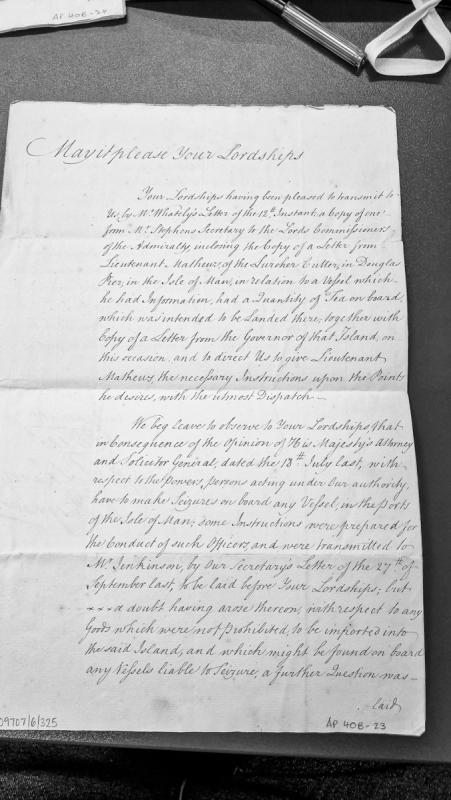 AP 40B-24
May it please Your Lordships
Your Lordships having been pleased to transmit to
Us, by Mr. Whately's Letter of the 12th. Instant, a Copy of one
from Mr. Stephens Secretary to the Lords Commissioners
of the Admiralty, inclosing the Copy of a Letter from
Lieutenant Mathews, of the Lurcher Cutter, in Douglas
Pier, in the Isle of Man, in relation to a Vessel which
he had Information, had a Quantity of Tea on board,
which was intended to be Landed there, together with
Copy of a Letter from the Governor of that Island, on
this occasion, and to direct Us to give Lieutenant
Mathews, the necessary Instructions upon the Points
he desires, with the utmost Dispatch
We beg leave to observe to Your Lordships, that
in Consequence of the Opinion of His Majesty's Attorney
and Solicitor General, dated the 13th July last, with
respect to the Powers, persons acting under Our authority,
have to make Seizures on board any Vessel, in the ports
of the Isle of Man; some Instructions were prepared for
the Conduct of such Officers, and were transmitted to
Mr. Jenkinson, by Our Secretary's Letter of the 27th of
September last, to be laid before Your Lordships; but
a doubt having arose thereon, with respect to any
Goods which were not prohibited, to be imported into
the said Island, and which might be found on board
any Vessels liable to Seizure, a further Question was
laid
09707/6/325
AP 40B-23